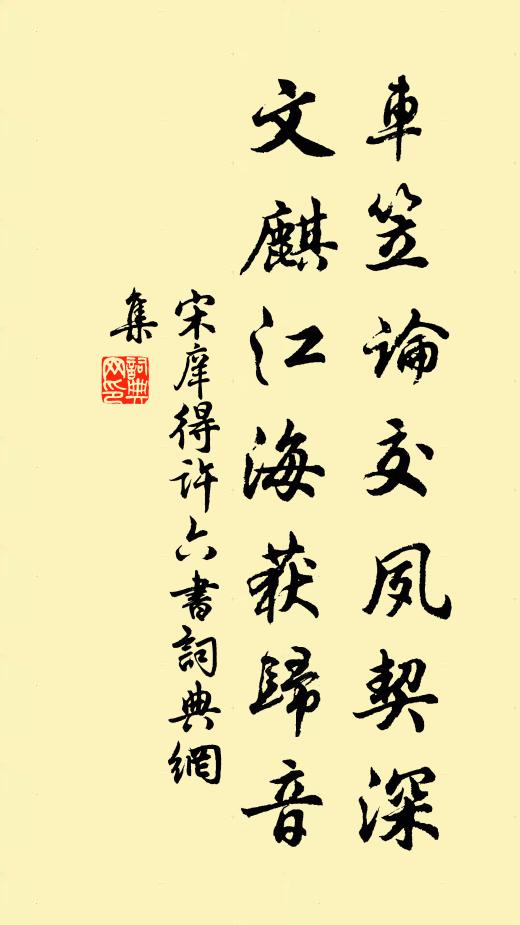 車笠論交夙契深
文麒江海获歸音
宋庠得许六書詞典網
集
詞典網印